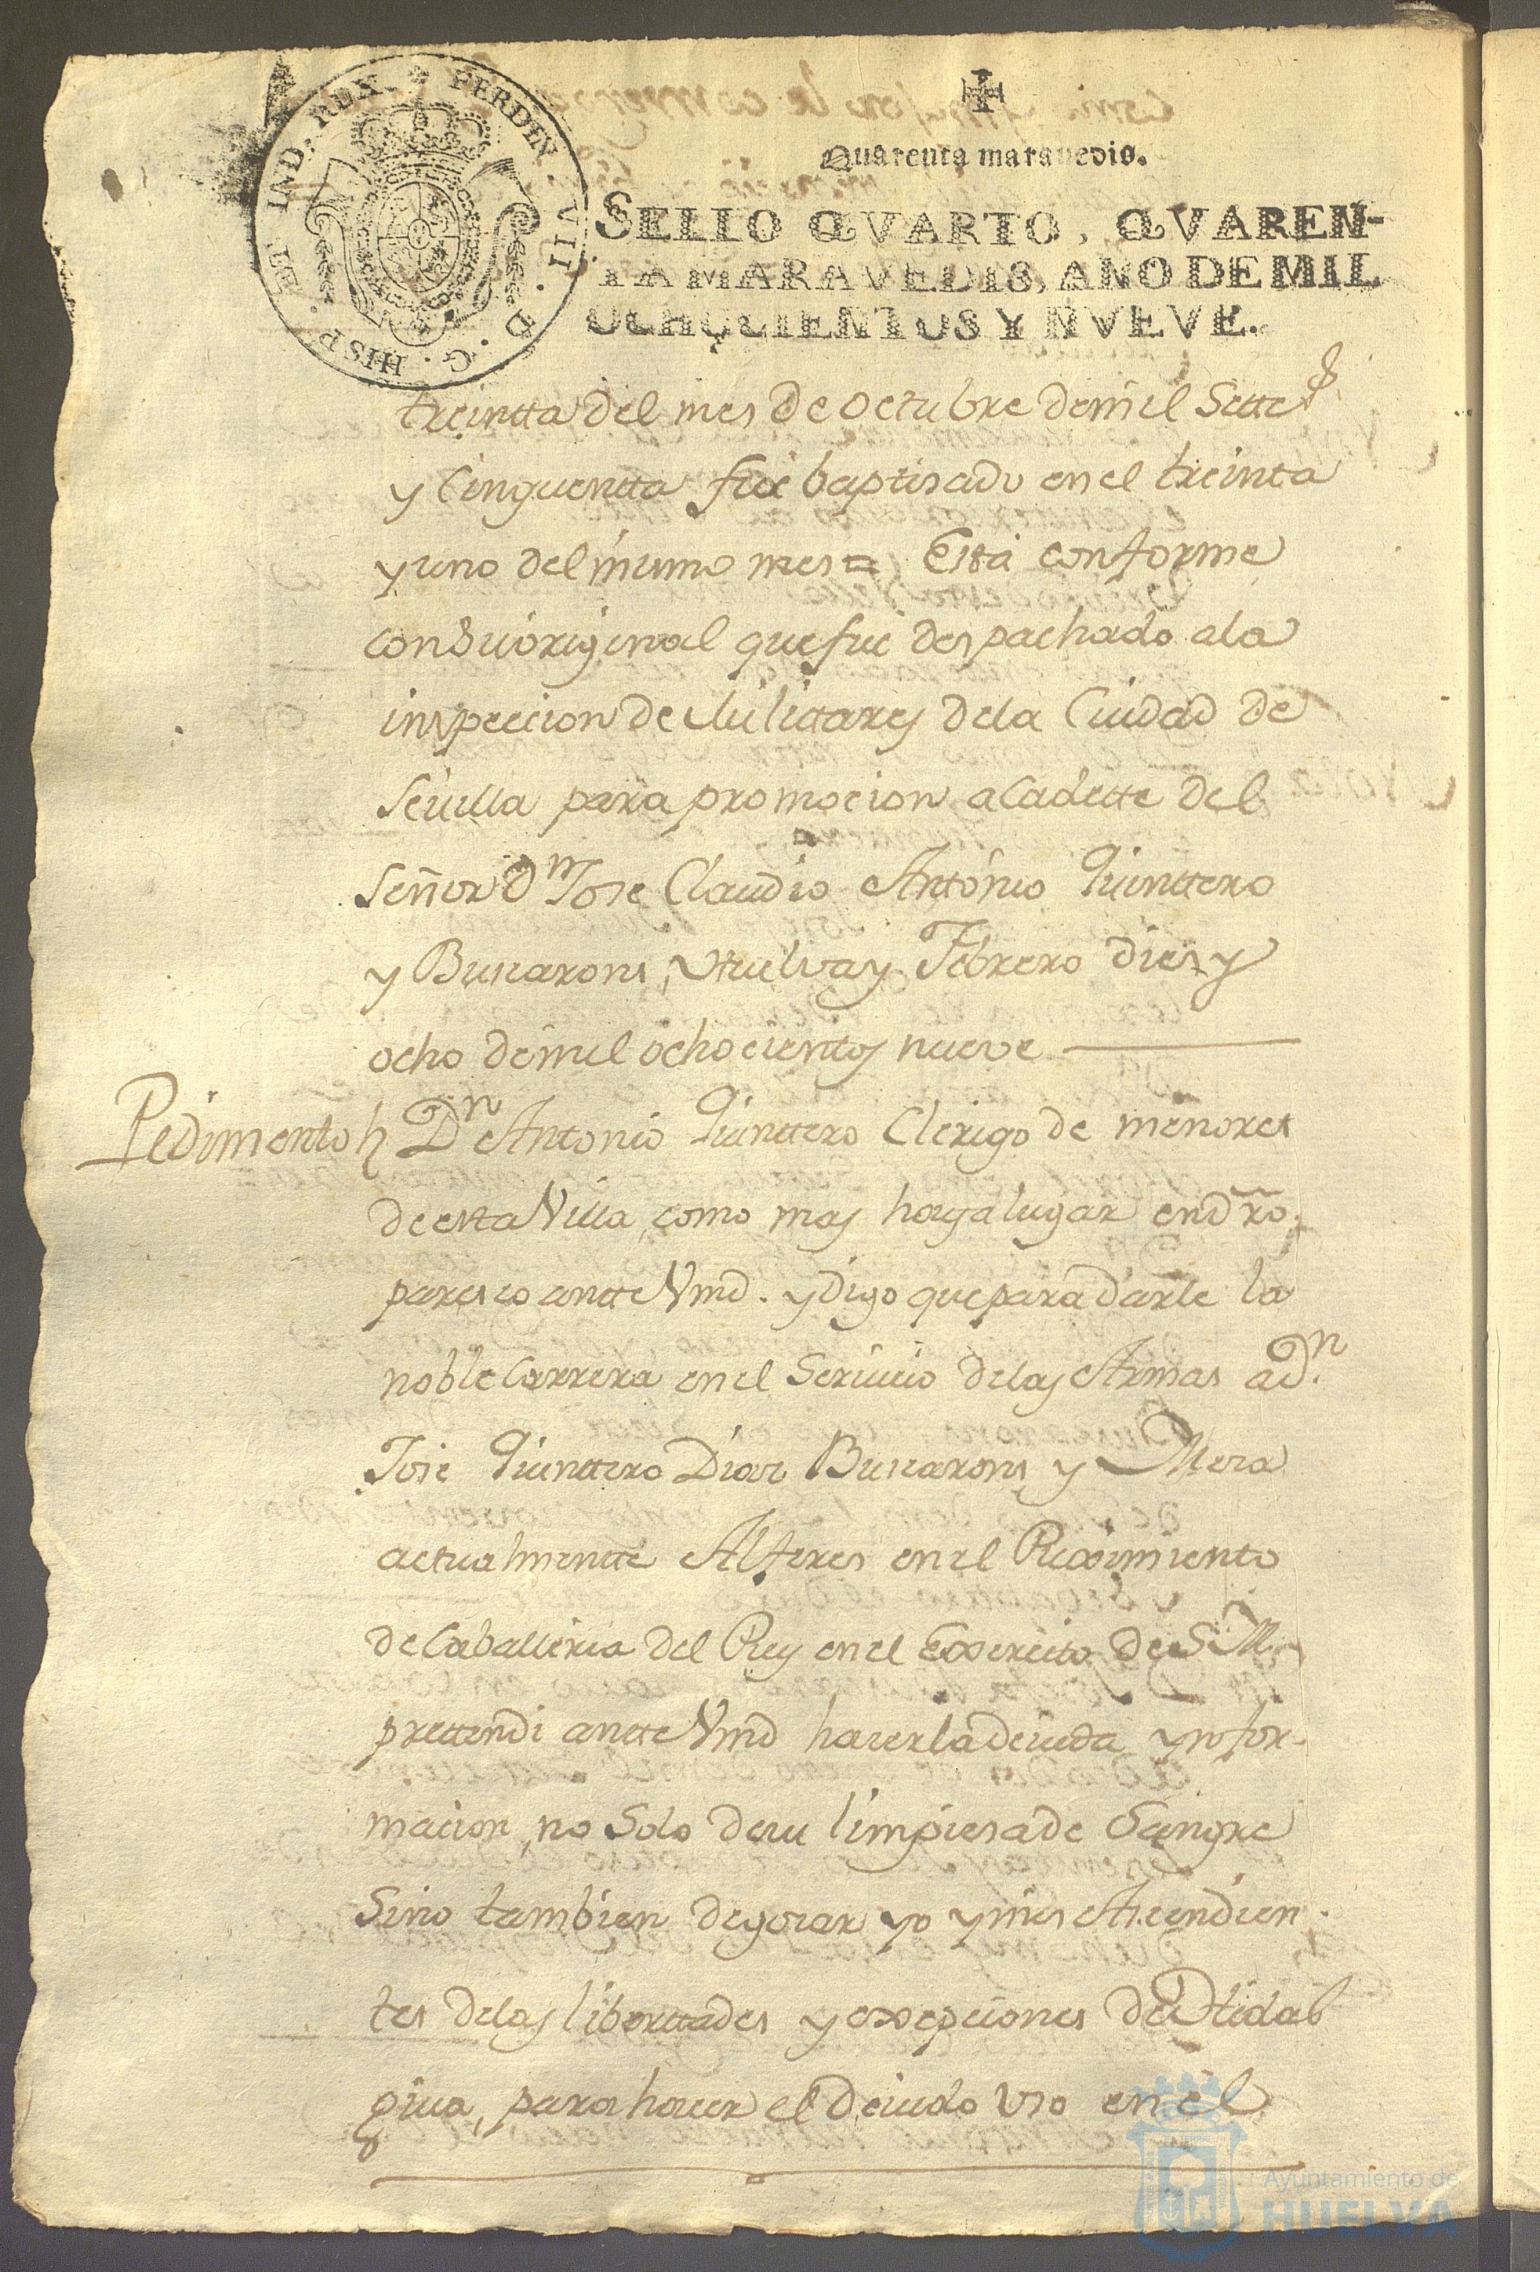 FERDIN. VII. D. G. HISP. ET IND. REX.
Quarenta maravedis.
SELLO QVARTO, QVAREN-
TA MARAVEDIS, AÑO DE MIL
OCHOCIENTOS Y NVEVE.
treintta del mes de octubre de mil Sette
y Cinquentta fue baptisado en el treinta
y uno del mismo mes = Está conforme
con su original que fue despachado a la
inspeccion de Militares de la Ciudad de
Sevilla para promocion a Cadette del
Señor Dn Jose Claudio Antonio Quinttero
y Buscarons, Huelva y Febrero dies y
ocho de mil ochocientos nueve
Pedimento Dn Antonio Quinttero Clerigo de menores
de esta Villa, como mas haya lugar en dro.
paresco antte Vmd. y Digo que para darle la
noble Carrera en el Servicio de las Armas a Dn.
Jose Quinttero Diaz Buscarons y Mora
actualmentte Alferes en el Reximiento
de Caballeria del Rey en el Exercito de S.M.
prettendi antte Vmd hacer la devida ynfor-
macion, no Solo de su limpiesa de Sangre
Sino tambien de gozar yo y mis Ascendien-
tes de las liberttades y exepciones de Hidal
guia, para hacer el devido uso en el
Ayuntamiento de
HUELVA